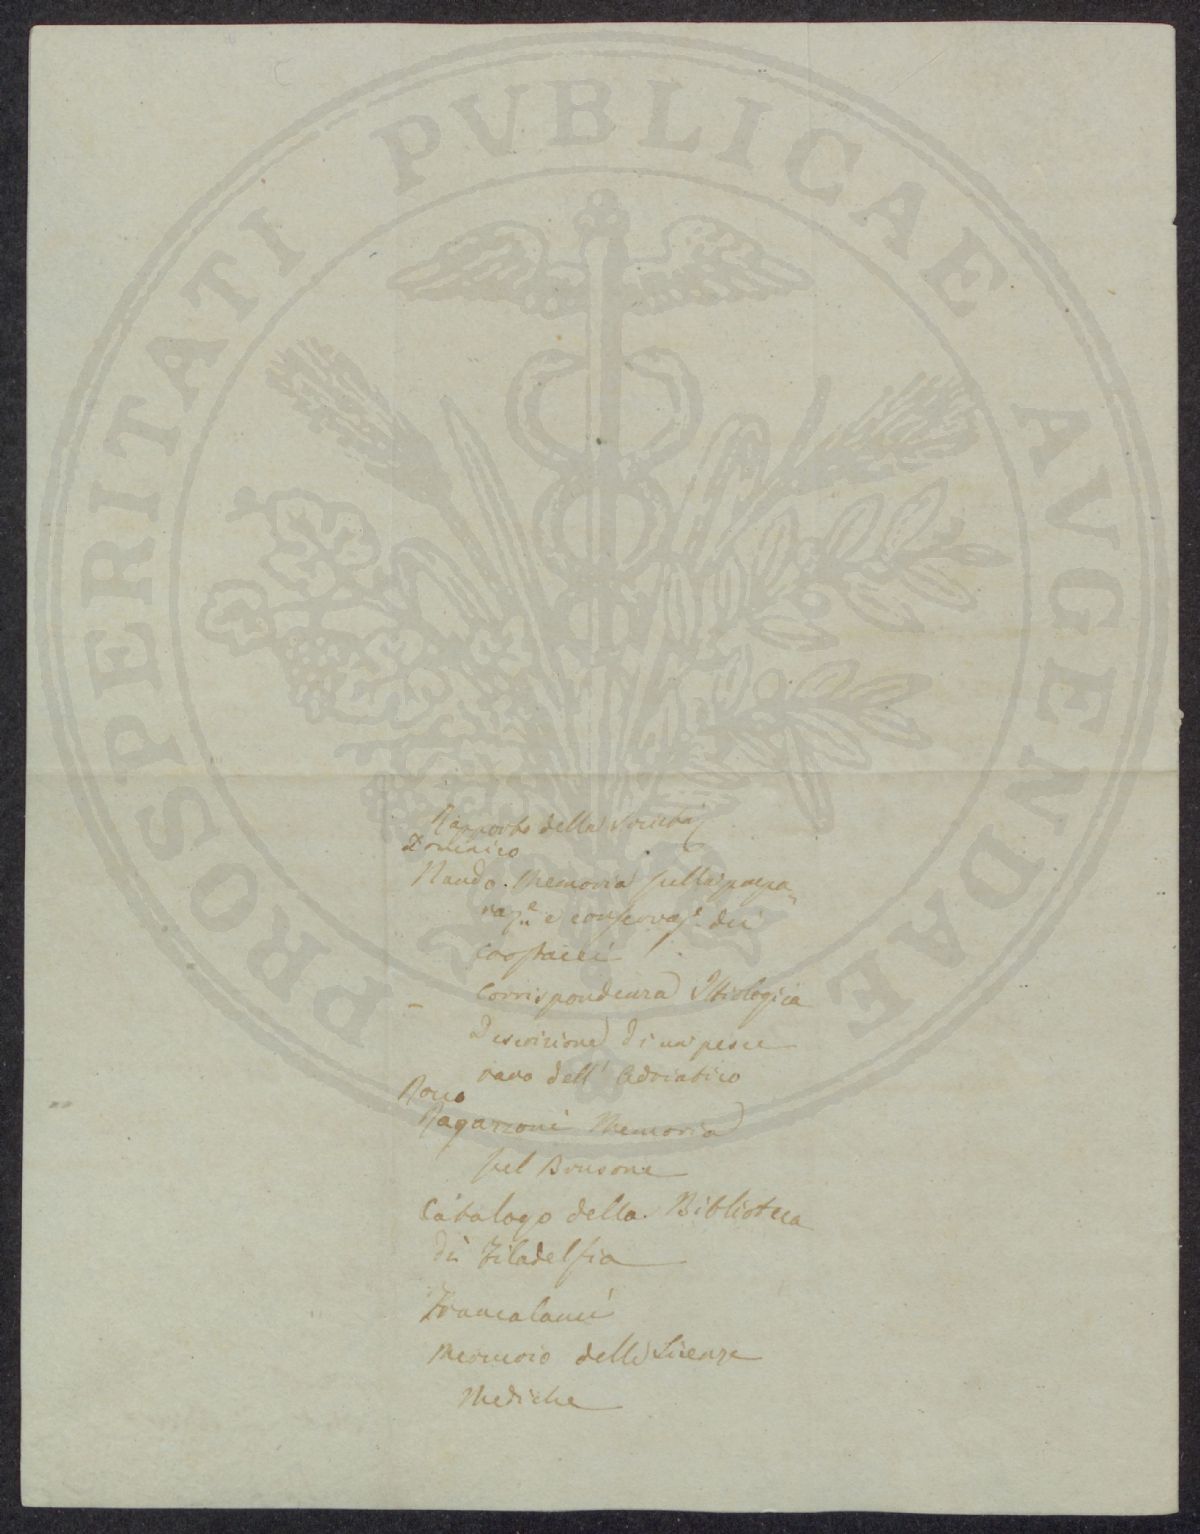 PROSPERITATI PVBLICAE AVGENDAE
Rapporto della Società
Domenico
Nardo. Memoria sulla prepa-
raz.e e conservaz.e dei
Crostacei
– Corrispondenza Ittiologica
Descrizione di un pesce
raro dell' Adriatico
Rocco
Ragazzoni Memoria
sul
Catalogo della Biblioteca
di Filadelfia
Memorie delle Scienze
Mediche